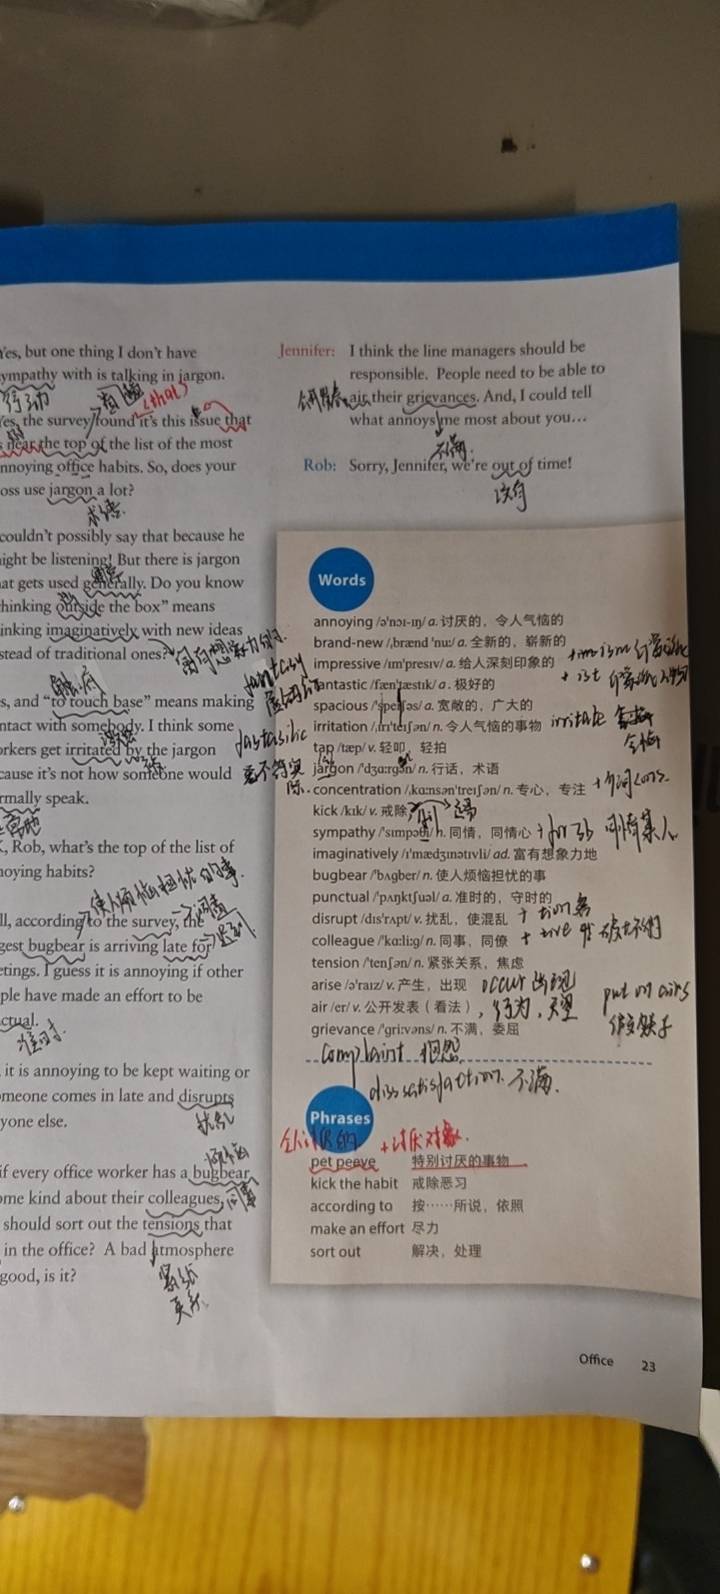 Yes, but one thing I don't have
sympathy with is talking in jargon.
行动
(that)
Yes, the survey found it's this issue that
near the top of the list of the most
annoying office habits. So, does your
boss use jargon a lot?
术语
couldn't possibly say that because he
might be listening! But there is jargon
that gets used generally. Do you know
thinking outside the box" means
thinking imaginatively with new ideas
instead of traditional ones?
富有想象力的
s, and "to touch base" means making
contact with somebody. I think some
workers get irritated by the jargon
because it's not how someone would
normally speak.
, Rob, what's the top of the list of
annoying habits?
使人烦恼担忧的事
ll, according to the survey, the
biggest bugbear is arriving late for
迟到
meetings. I guess it is annoying if other
people have made an effort to be
punctual.
准时
it is annoying to be kept waiting or
someone comes in late and disrupts
扰乱
yone else.
if every office worker has a bugbear
some kind about their colleagues,
同事
should sort out the tensions that
in the office? A bad atmosphere
good, is it?
紧张
关系
Jennifer: I think the line managers should be
responsible. People need to be able to
air their grievances. And, I could tell
what annoys me most about you…
不满
Rob: Sorry, Jennifer, we're out of time!
没有
Words
annoying /ə'nɔɪ-ɪŋ/ a. 讨厌的，令人气恼的
brand-new /ˌbrænd 'nuː/ a. 全新的，崭新的
impressive /ɪm'presɪv/ a. 给人深刻印象的
+ ist
fantastic /fæn'tæstɪk/ a. 极好的
fantasy
spacious /'speɪʃəs/ a. 宽敞的，广大的
irritation /ˌɪrɪ'teɪʃən/ n. 令人气恼的事物 irritate
tap /tæp/ v. 轻叩，轻拍
jargon /'dʒɑːrgən/ n. 行话，术语
concentration /ˌkɑːnsən'treɪʃən/ n. 专心，专注
kick /kɪk/ v. 戒除
踢
sympathy /'sɪmpəθi/ n. 同情，同情心 + for sb 同情某人
imaginatively /ɪ'mædʒɪnətɪvli/ ad. 富有想象力地
bugbear /'bʌgber/ n. 使人烦恼担忧的事
punctual /'pʌŋktʃuəl/ a. 准时的，守时的
disrupt /dɪs'rʌpt/ v. 扰乱，使混乱 + tion 名
colleague /'kɑːliːg/ n. 同事，同僚 + tive
tension /'tenʃən/ n. 紧张关系，焦虑
arise /ə'raɪz/ v. 产生，出现 occur 出现
air /er/ v. 公开发表（看法），行为，天空
put on airs
grievance /'griːvəns/ n. 不满，委屈
complaint 抱怨
dissatisfaction. 不满.
Phrases
+讨厌对象
pet peeve 特别讨厌的事物
kick the habit 戒除恶习
according to 按……所说，依照
make an effort 尽力
sort out 解决，处理
Office 23